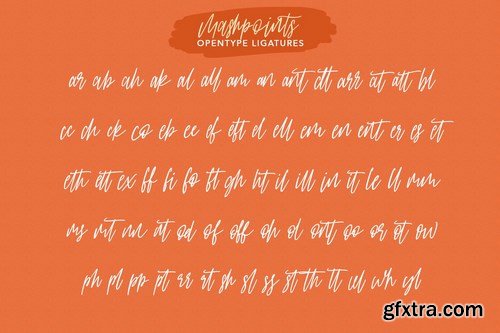 Mashpoints
OPENTYPE LIGATURES
ar ab ah ak al all am an ant ctt arr at att bl
cc ch ck co eb ee ef eft el ell em en ent er es et
eth ett ex ff fi fo ft gh ht il ill in it le ll mm
ms mt nn ot od of off oh ol ont oo or ot ow
ph pl pp pt rr rt sh sl ss st th tt ul wh yl
gfxtra.com